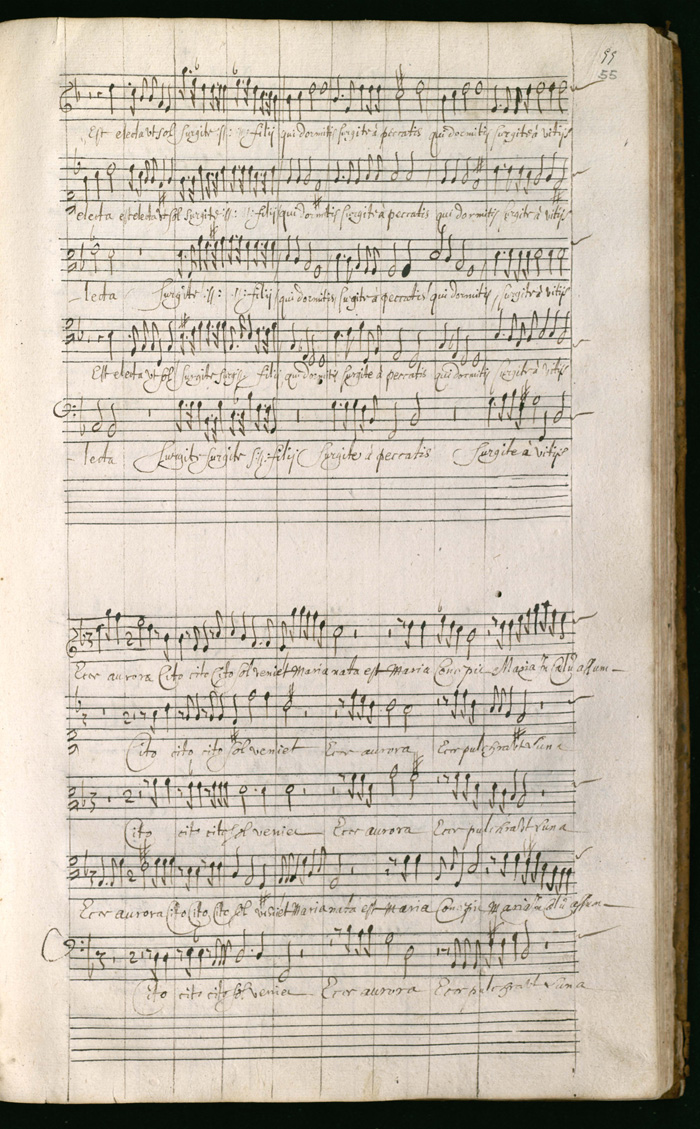 55
55
Est electa ut sol surgite :||: :||: filij qui dormitis surgite à peccatis qui dormitis surgite à vitijs
electa est electa ut sol surgite :||: :||: filij qui dormitis surgite à peccatis qui dormitis surgite à vitijs
lecta surgite :||: :||: filij qui dormitis surgite à peccatis qui dormitis surgite à vitijs
Est electa ut sol surgite surgite filij qui dormitis surgite à peccatis qui dormitis surgite à vitijs
lecta surgite surgite :||: filij surgite à peccatis surgite à vitijs
Ecce aurora Cito cito Cito sol veniet Maria nata est Maria Concipit Maria assum
Cito cito cito sol veniet Ecce aurora Ecce pulchra ut Luna
Cito cito cito sol veniet Ecce aurora Ecce pulchra ut Luna
Ecce aurora Cito Cito, Cito sol veniet Maria nata est Maria Concipit Maria assum
Cito cito cito sol veniet Ecce aurora Ecce pulchra ut Luna